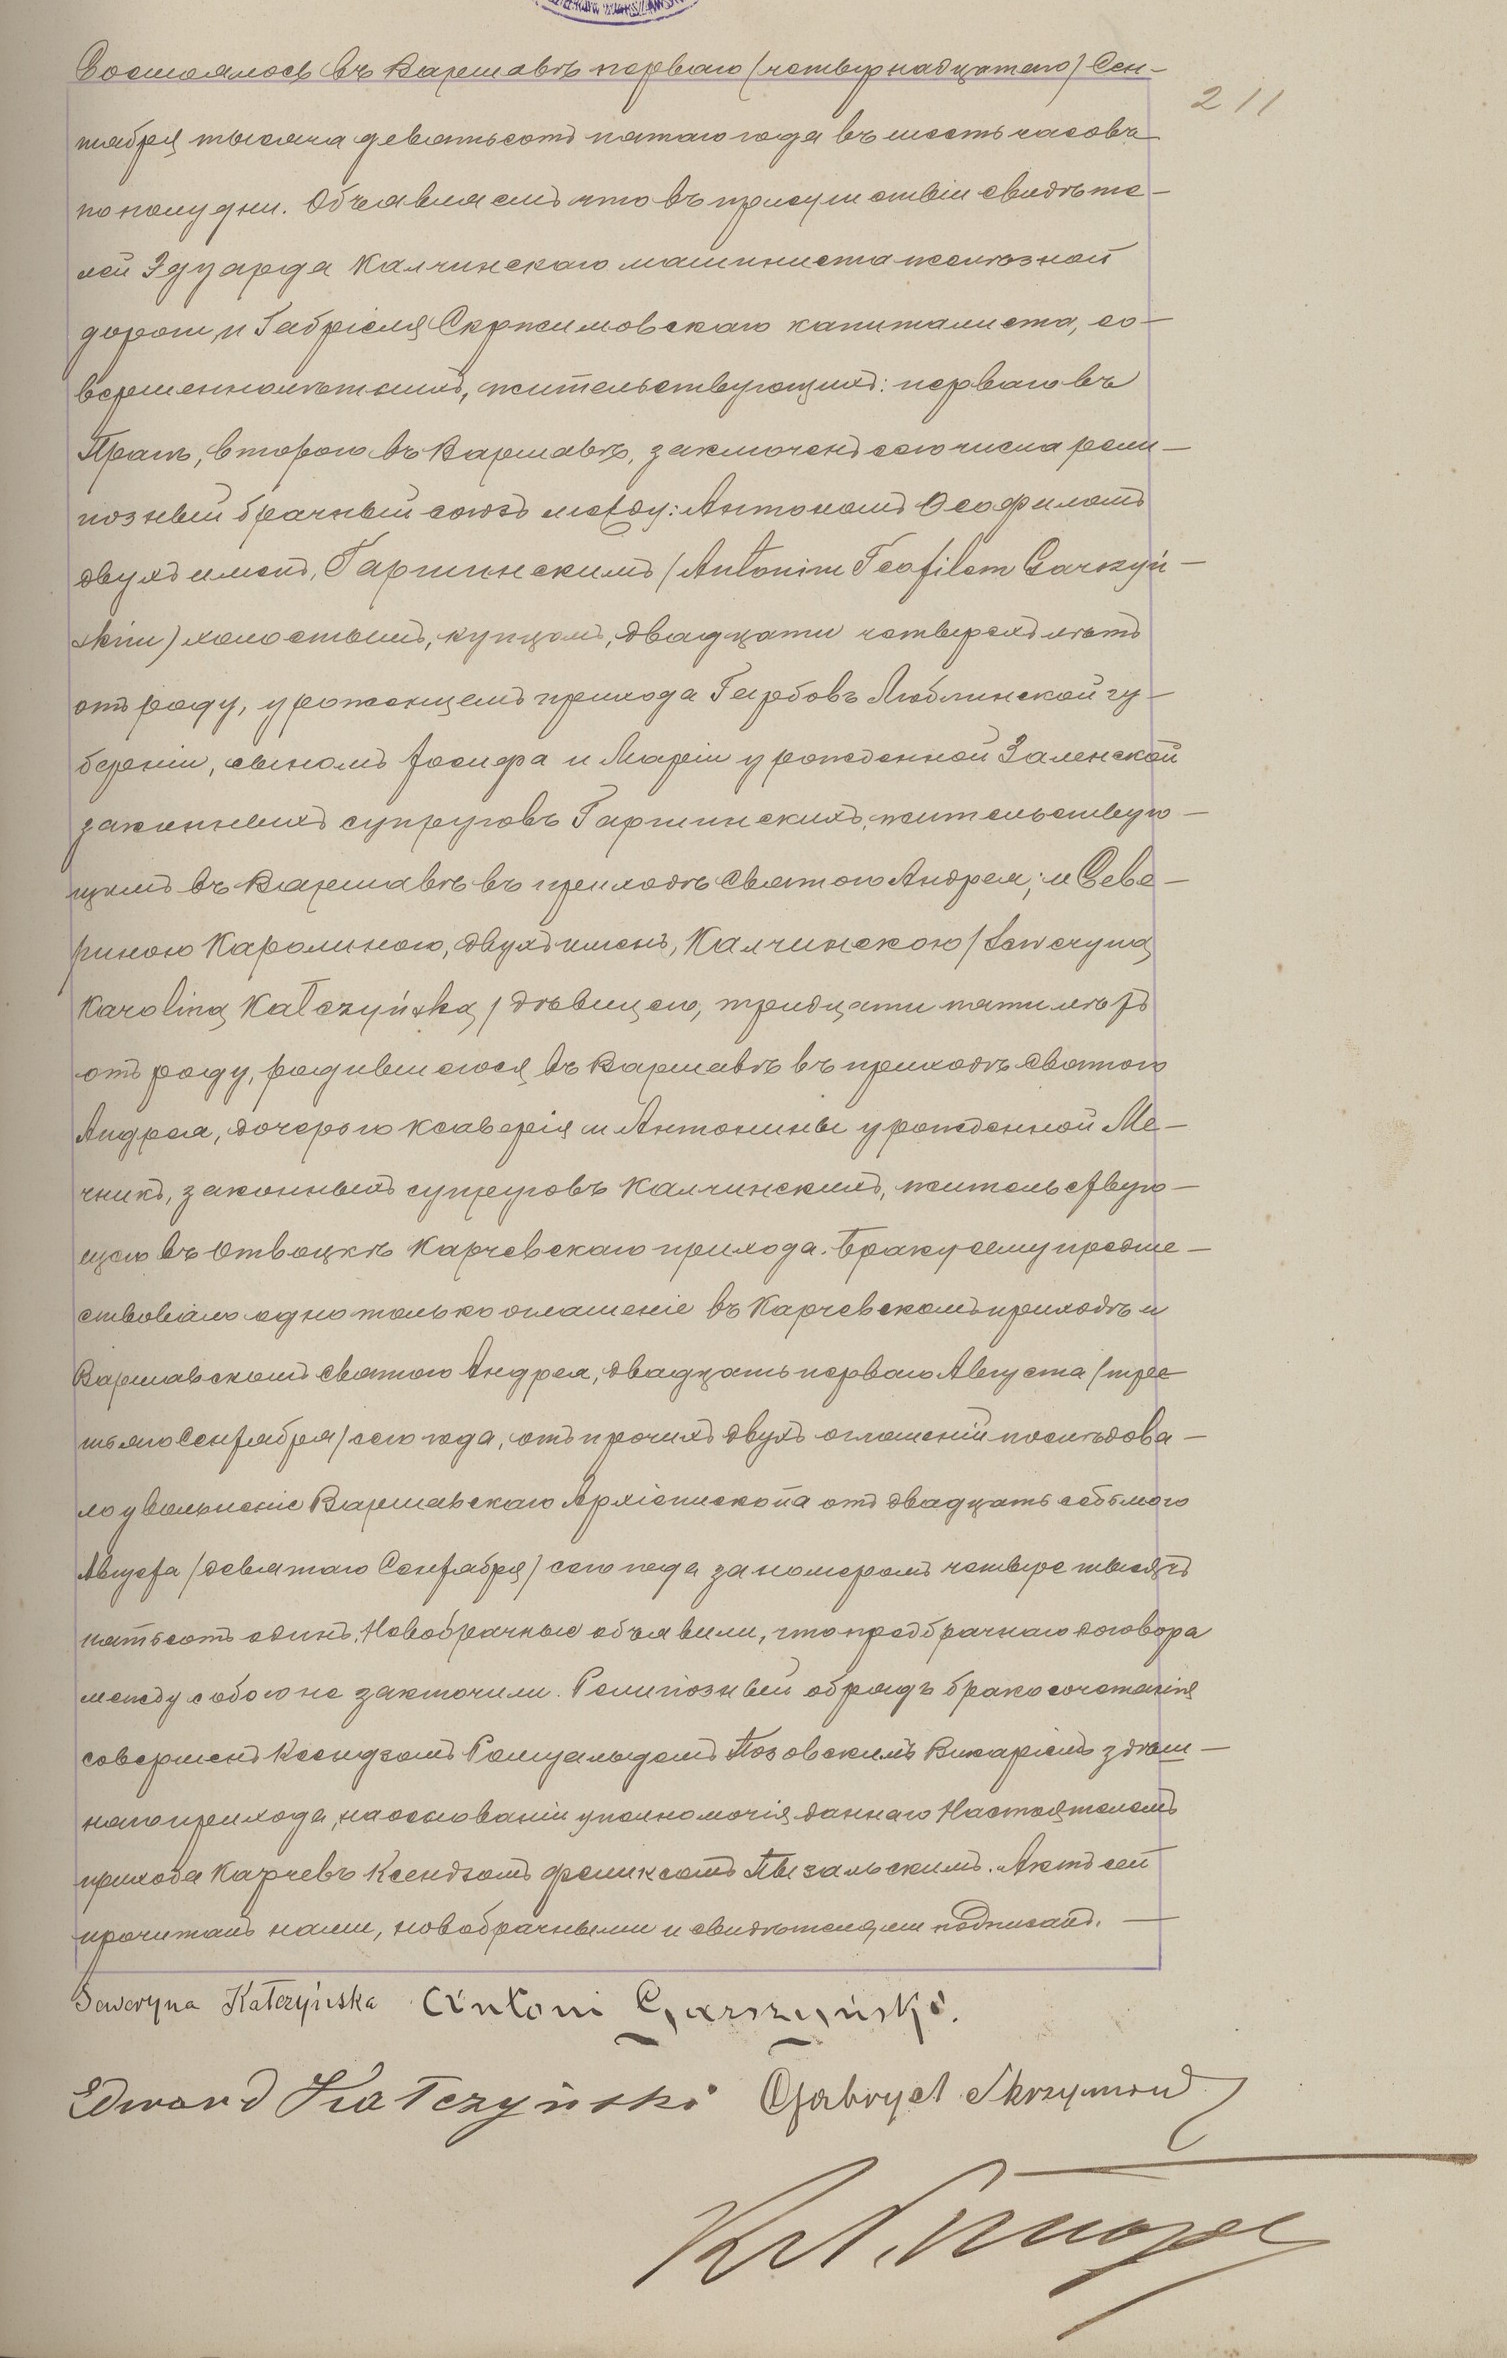 211
Состоялось въ Варшавѣ перваго (четырнадцатаго) Сен-
тября тысяча девятьсотъ пятаго года въ шесть часовъ
по полудни. Объявляемъ что въ присутствіи свидѣте-
лей Эдуарда Калчинскаго машиниста желѣзной
дороги, и Габріеля Скржимовскаго капиталиста, со-
вершеннолѣтнихъ, жительствующихъ: перваго въ
Прагѣ, второго въ Варшавѣ, заключенъ сего числа рели-
гіозный брачный союзъ между: Антономъ Ѳеофиломъ
двухъ именъ, Гаршинскимъ (Antonim Teofilem Garszyń-
skim) холостымъ, купцомъ, двадцати четырехъ лѣтъ
отъ роду, уроженцемъ прихода Гарбовъ Люблинской гу-
берніи, сыномъ Іосифа и Маріи урожденной Заленской
законныхъ супруговъ Гаршинскихъ, жительствую-
щимъ въ Варшавѣ въ приходѣ Святого Андрея; и Севе-
риною Каролиною, двухъ именъ, Калчинскою (Seweryną
Karoliną Kałczyńską) дѣвицею, тридцати пяти лѣтъ
отъ роду, родившеюся въ Варшавѣ въ приходѣ Святого
Андрея, дочерью Ксаверія и Антонины урожденной Ме-
чникъ, законныхъ супруговъ Калчинскихъ, жительствую-
щею въ Отвоцкѣ Карчевскаго прихода. Браку сему предше-
ствовало одно только оглашеніе въ Карчевскомъ приходѣ и
Варшавскомъ Святого Андрея, двадцать перваго Августа (тре-
тьяго Сентября) сего года, отъ прочихъ двухъ оглашеній послѣдова-
ло увольненіе Варшавскаго Архіепископа отъ двадцать седьмого
Августа (девятаго Сентября) сего года за номеромъ четыре тысячи
пятьсотъ одинъ. Новобрачные объявили, что предбрачнаго договора
между собою не заключили. Религіозный обрядъ бракосочетанія
совершенъ Ксендзомъ Ромуальдомъ Викаріемъ здѣш-
няго прихода, на основаніи уполномочія даннаго Настоятелемъ
прихода Карчевъ Ксендзомъ Феликсомъ Актъ сей
прочитанъ нами, новобрачными и свидѣтелями подписанъ.
Seweryna Kałczyńska Antoni Garszyński.
Edward Kałczyński Gabryel Skrzymowski